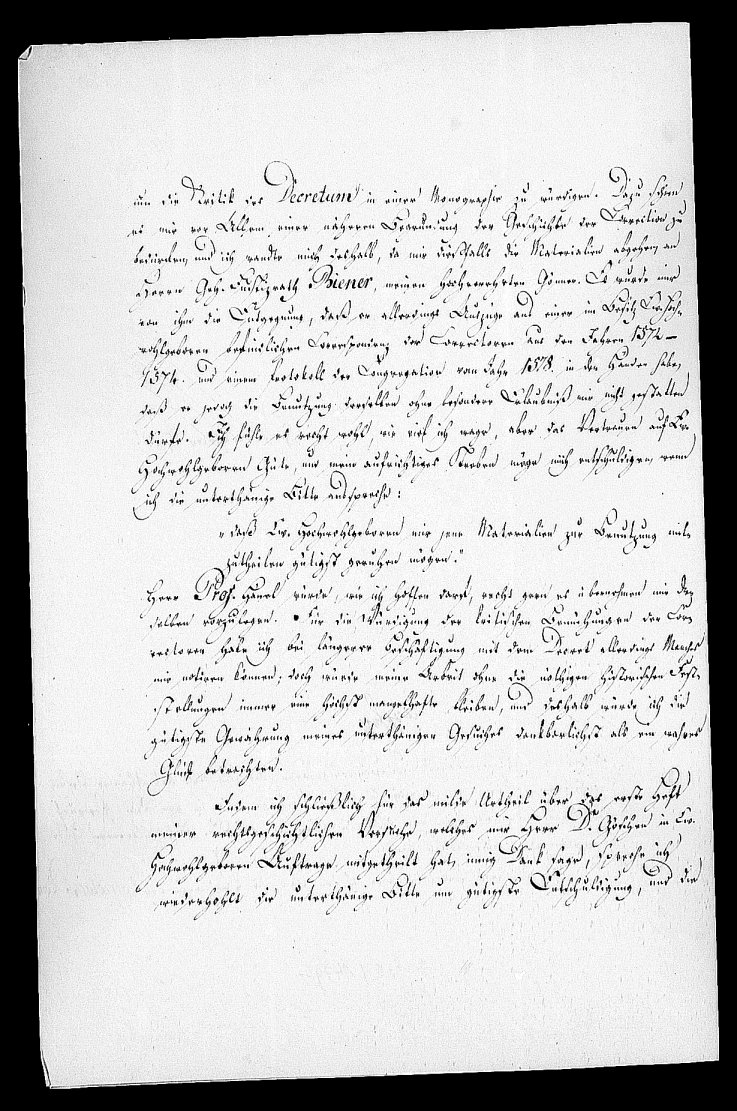 um die Kritik des Decretum in einer Monographie zu würdigen. Dazu schien
es mir vor Allem einer näheren Begründung der Geschichte der Correction zu
bedürfen, und ich wandte mich deshalb, da mir diesfalls die Materialien abgehen, an
Herrn Geh. Justizrath Biener, meinen hochverehrten Gönner. Es wurde mir
von ihm die Entgegnung, daß er allerdings Auszüge aus einer im Besitz Ew. Hoch-
wohlgeboren befindlichen Correspondenz der Correctoren aus den Jahren 1572 –
1574. und einem Protokoll der Congregation vom Jahr 1578. in den Händen habe,
daß er jedoch die Benutzung derselben ohne besondere Erlaubniß mir nicht gestatten
dürfe. Ich fühle es recht wohl, wie viel ich wage, aber das Vertrauen auf Ew.
Hochwohlgeboren Güte, und mein aufrichtiges Streben möge mich entschuldigen, wenn
ich die unterthänige Bitte ausspreche:
"daß Ew. Hochwohlgeboren mir jene Materialien zur Benutzung mit-
zutheilen gütigst geruhen mögen."
Herr Prof. Hänel würde, wie ich hoffen darf, recht gern es übernehmen mir die-
selben vorzulegen. Für die Würdigung der kritischen Bemühungen der Cor-
rectoren habe ich bei längerer Beschäftigung mit dem Decret allerdings Manches
mir notiren können; doch würde meine Arbeit ohne die nöthigen historischen Fest-
stellungen immer eine höchst mangelhafte bleiben, und deshalb würde ich die
gütigste Gewährung meines unterthänigen Gesuches dankbarlichst als ein wahres
Glück betrachten.
Indem ich schließlich für das milde Urtheil über das erste Heft
meiner rechtsgeschichtlichen Versuche, welches mir Herr Dr Göschen in Ew.
Hochwohlgeboren Auftrage mitgetheilt hat, innig Dank sage, spreche ich
wiederhohlt die unterthänige Bitte um gütigste Entschuldigung, und die